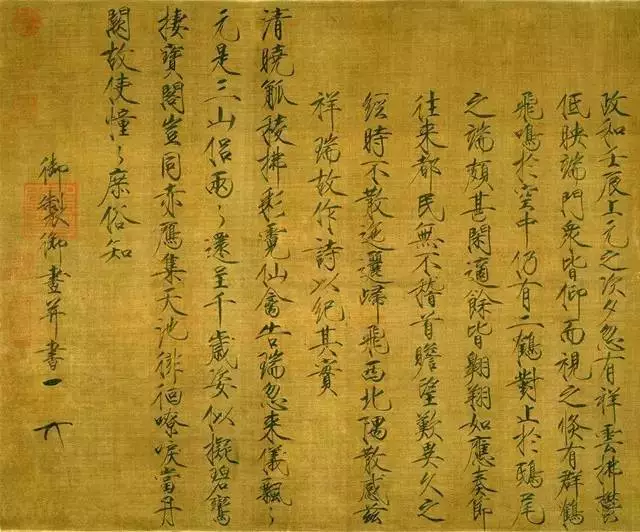 政和壬辰上元之次夕忽有祥雲拂鬱
低映端門眾皆仰而視之倐有群鶴
飛鳴於空中仍有二鶴對止於鴟尾
之端頗甚閑適餘皆翱翔如應奏節
往來都民無不稽首瞻望歎異久之
經時不散迤邐歸飛西北隅散感茲
祥瑞故作詩以紀其實
清曉觚稜拂彩霓仙禽告瑞忽來儀飄〻
元是三山侶兩〻還呈千歲姿似擬碧鸞
棲寶閣豈同赤鴈集天池徘徊嘹唳當丹
闕故使憧〻庶俗知
御製御畫并書